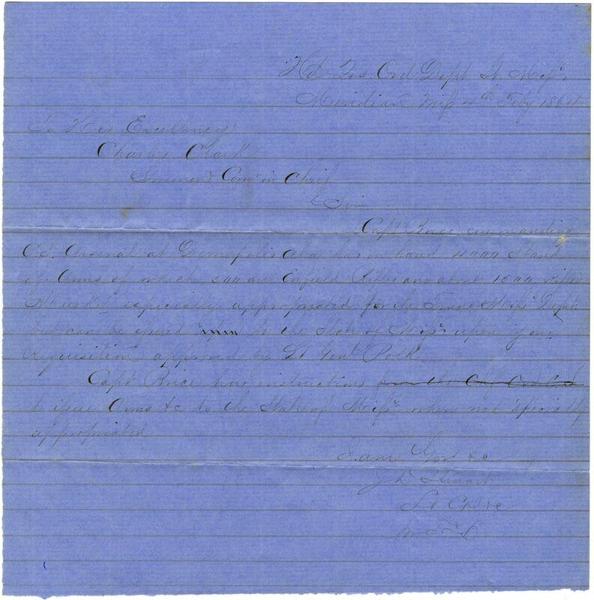 Hd Qrs Ord Dept St Miss
Meridian Miss 4th Feby 1864
To His Excellency
Charles Clark
Com in Chief
Sir
Capt Rice commanding
C.S. Arsenal at Demopolis Ala has on hand Stand
of Arms of which 500 are Enfield Rifles and about 1000 rifle
Muskets especially appropriated for the Trans Miss Dept
but can be issued to the State of Miss upon your
requisition approved by Lt Genl Polk
Capt Rice has instructions
to issue Arms &c to the State of Miss when not specially
appropriated
I am Gov &c